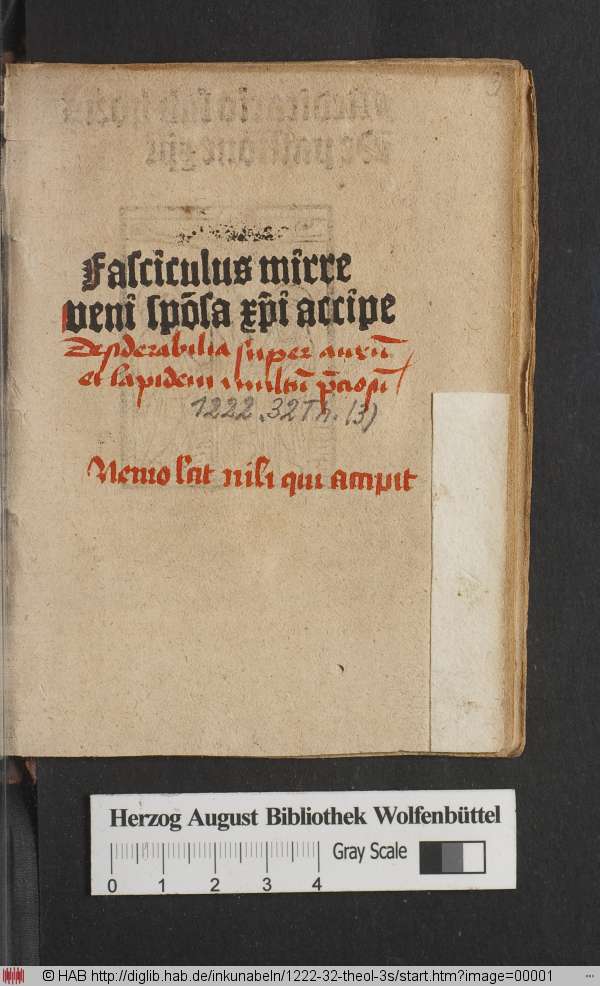 3
Faſciculus mirre
veni ſpōſa xp̄i accipe
Desiderabilia super aurū
et lapidem multū p̄ciosū
1222.32Th. (3)
Nemo ſcit niſi qui accipit
Herzog August Bibliothek Wolfenbüttel
Gray Scale
0 1 2 3 4
© HAB http://diglib.hab.de/inkunabeln/1222-32-theol-3s/start.htm?image=00001